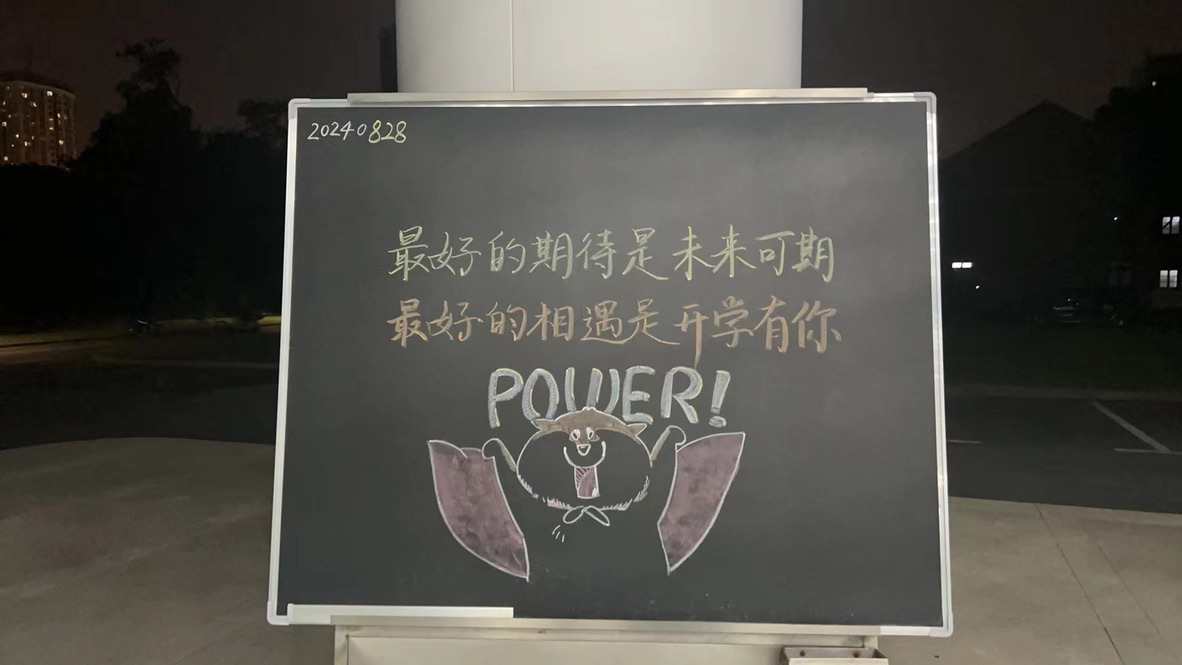 20240828
最好的期待是未来可期
最好的相遇是开学有你
POWER!